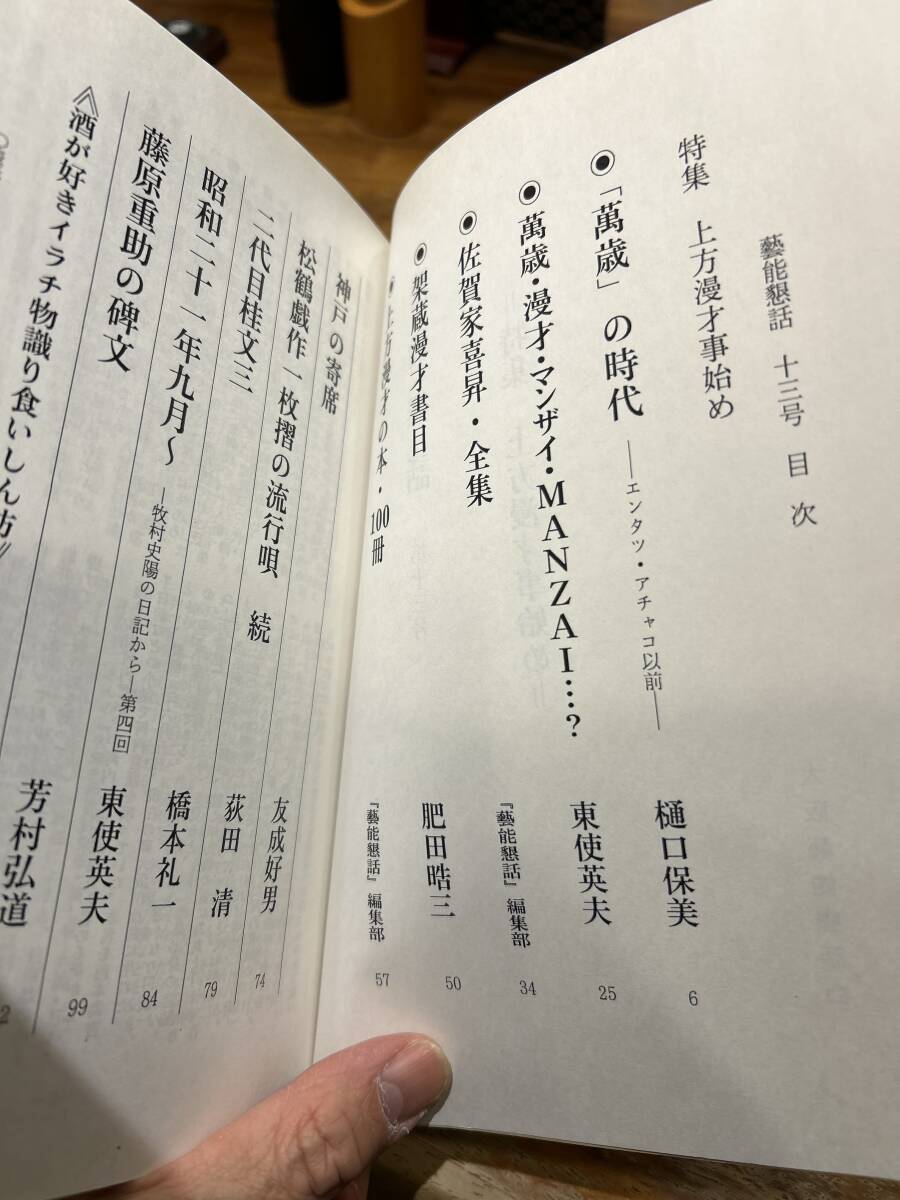 藝能懇話　十三号　目　次
特集　上方漫才事始め
◉「萬歳」の時代　――エンタツ・アチャコ以前――　樋口保美　6
◉萬歳・漫才・マンザイ・MANZAI…?　東使英夫　25
◉佐賀家喜昇・全集　『藝能懇話』編集部　34
◉架蔵漫才書目　肥田晧三　50
◉上方漫才の本・100冊　『藝能懇話』編集部　57
神戸の寄席　友成好男　74
松鶴戯作一枚摺の流行唄　続　荻田　清　79
二代目桂文三　橋本礼一　84
昭和二十一年九月〜　―牧村史陽の日記から―第四回　東使英夫　99
藤原重助の碑文　芳村弘道　2
《酒が好きイラチ物識り食いしん坊》